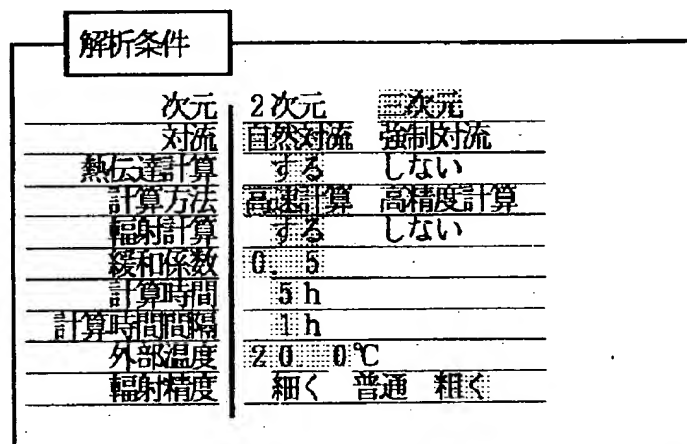 解析条件
次元 2次元 三次元
対流 自然対流 強制対流
熱伝達計算 する しない
計算方法 高速計算 高精度計算
輻射計算 する しない
緩和係数 0. 5
計算時間 5h
計算時間間隔 1h
外部温度 20 0℃
輻射精度 細く 普通 粗く